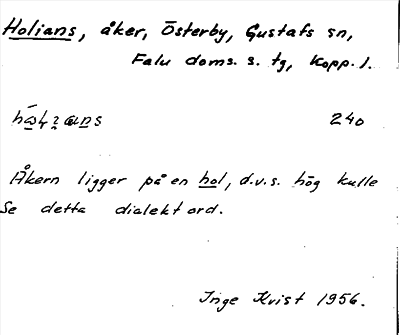 Holians, åker, Österby, Gustafs sn,
Falu doms. s. tg, Kopp. l.
240
Åkern ligger på en hol, d.v.s. hög kulle
Se detta dialektord.
Inge Kvist 1956.